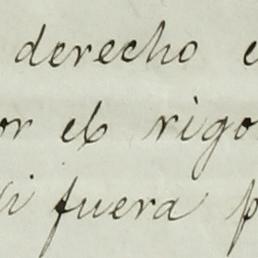 derecho e
or el rigo
si fuera p